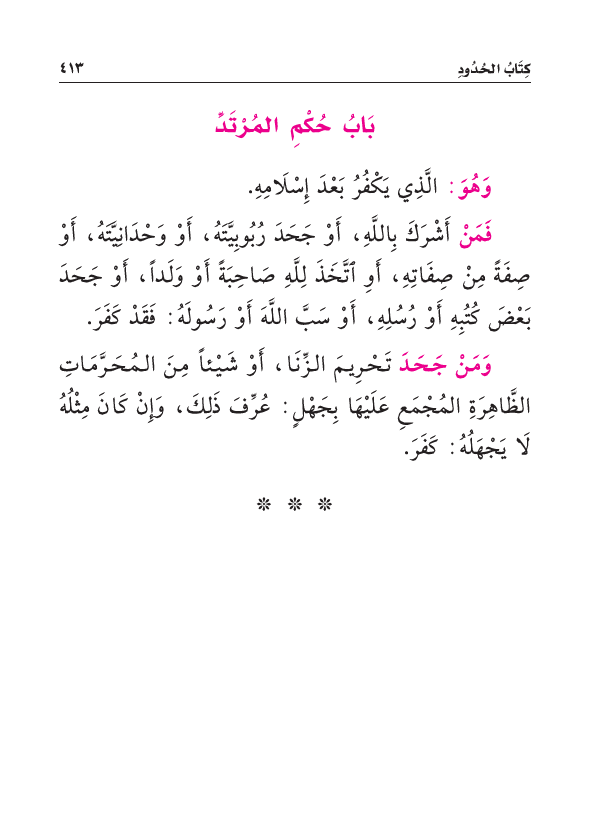 كِتَابُ الحُدُودِ ٤١٣
بَابُ حُكْمِ المُرْتَدِّ
وَهُوَ: الَّذِي يَكْفُرُ بَعْدَ إِسْلَامِهِ.
فَمَنْ أَشْرَكَ بِاللَّهِ، أَوْ جَحَدَ رُبُوبِيَّتَهُ، أَوْ وَحْدَانِيَّتَهُ، أَوْ
صِفَةً مِنْ صِفَاتِهِ، أَوِ ٱتَّخَذَ لِلَّهِ صَاحِبَةً أَوْ وَلَداً، أَوْ جَحَدَ
بَعْضَ كُتُبِهِ أَوْ رُسُلِهِ، أَوْ سَبَّ اللَّهَ أَوْ رَسُولَهُ: فَقَدْ كَفَرَ.
وَمَنْ جَحَدَ تَحْرِيمَ الزِّنَا، أَوْ شَيْئاً مِنَ المُحَرَّمَاتِ
الظَّاهِرَةِ المُجْمَعِ عَلَيْهَا بِجَهْلٍ: عُرِّفَ ذَلِكَ، وَإِنْ كَانَ مِثْلُهُ
لَا يَجْهَلُهُ: كَفَرَ.
* * *